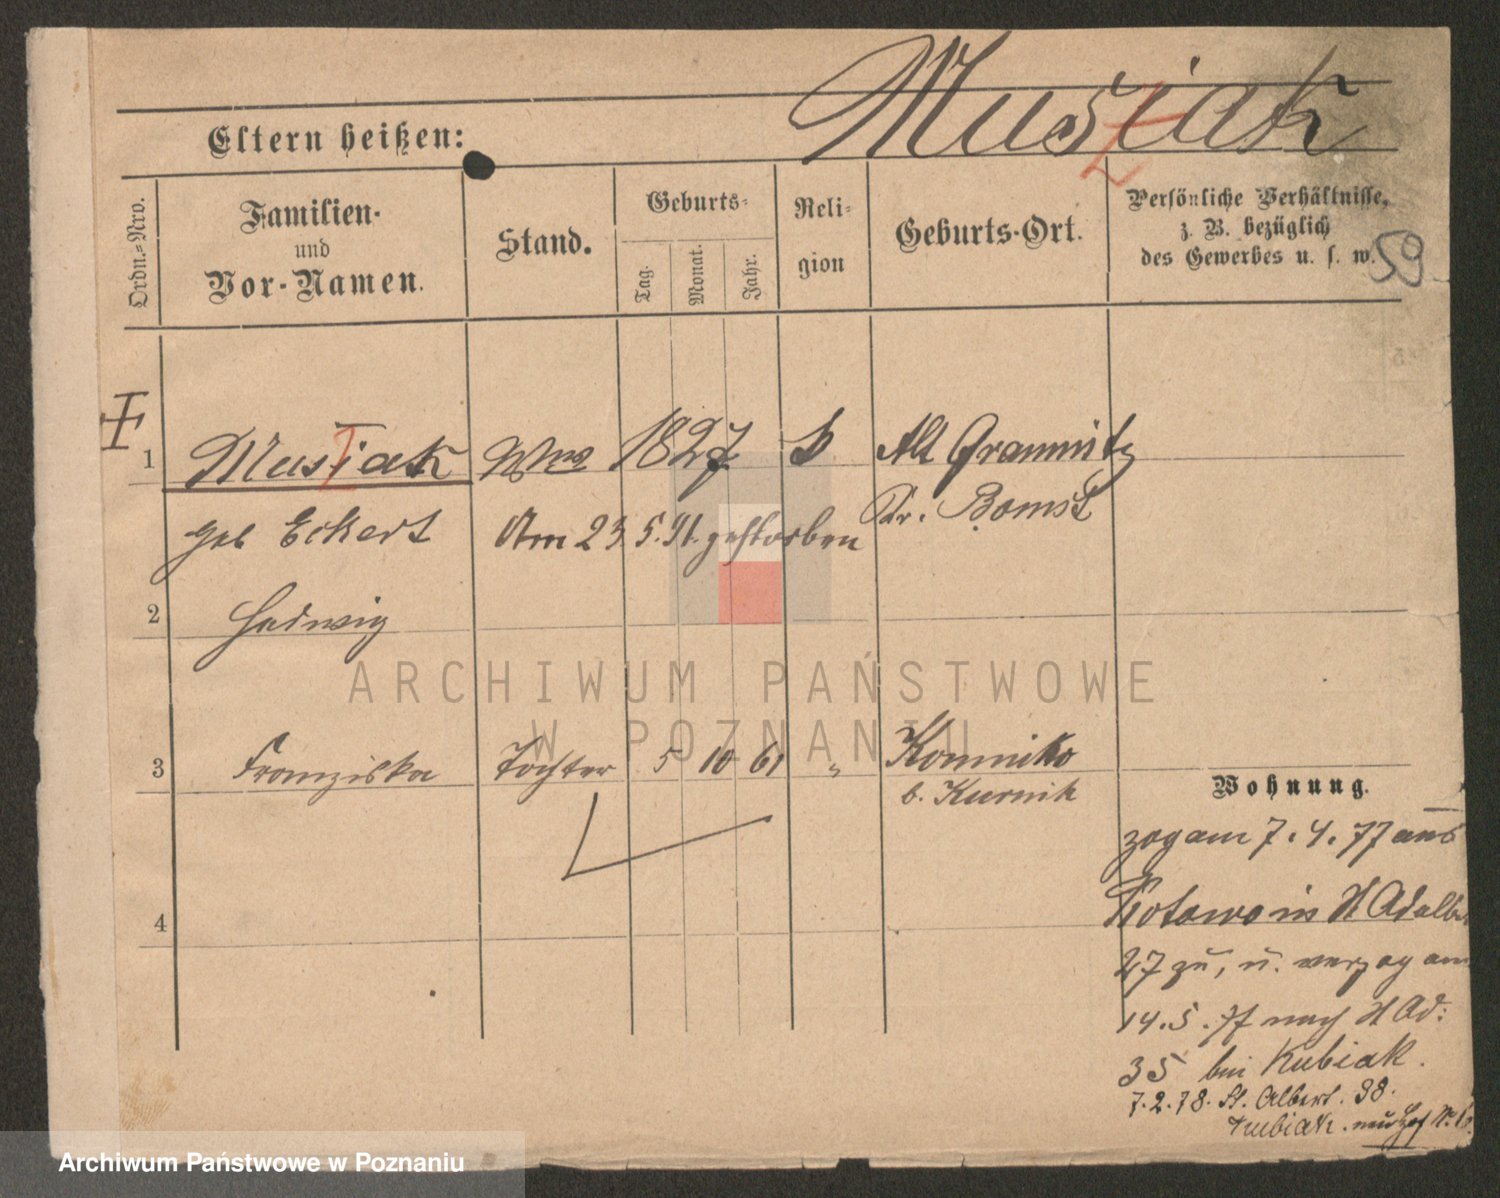 Musiak
Eltern heißen:
Ordn.=Nro.
Familien-
und
Vor-Namen.
Stand.
Geburts-
Tag.
Monat.
Jahr.
Reli-
gion
Geburts-Ort.
Persönliche Verhältnisse,
z. B. bezüglich
des Gewerbes u. s. w.
59
1 Musiak Wwe 1827 Alt Grannitz
geb Eckert Am 23.5.91. gestorben Kr. Bomst
2 Hedwig
3 Franziska Tochter 5 10 61 " Konniko
b. Kurnik
Wohnung.
zog am 7.4.77 aus
Kotowo in St Adalb
4
27 zu, u. verzog am
14.5.77 nach St Ad:
35 bei Kubiak.
7.2.78. St. Albert. 38.
Kubiak. neuhof No 6.
ARCHIWUM PAŃSTWOWE
W POZNANIU
Archiwum Państwowe w Poznaniu